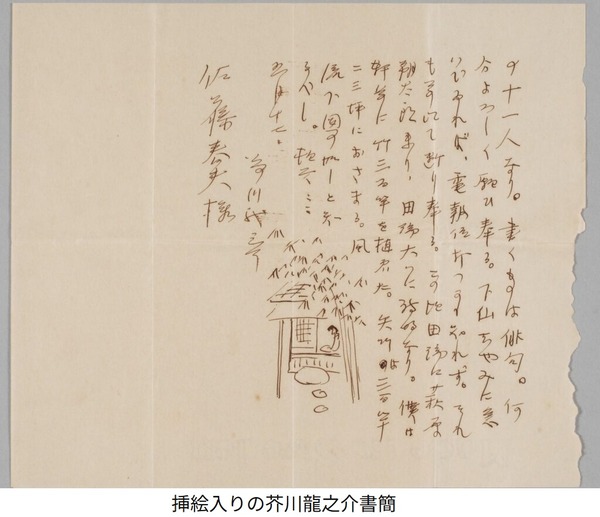 の十一人なり。書くものは俳句。何
分よろしく願ひ奉る。下仙ちやみに
れば、電報位打つかも知れず。それ
も予め断り奉る。この地田端に萩原
朔太郎来り、田端大いに詩的なり。僕は
軒先に竹三百竿を植ゑた。矢竹三百竿
二三坪におさまる。風
流下図の如しと知
るべし。頓首
五月十七日
芥川龍之介
佐藤春夫様
挿絵入りの芥川龍之介書簡